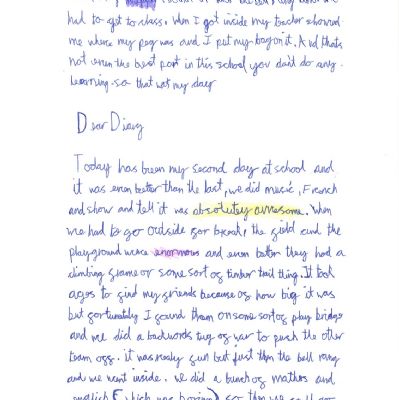 had to get to class. When I got inside my teacher showed
me where my peg was and I put my bag on it. And thats
not even the best part in this school you did't do any-
learning. so that was my day
Dear Diary
Today has been my second day at school and
it was even better than the last, we did music, French
and show and tell it was absolutely awesome. When
we had to go outside for break, the field and the
playground were enormous and even better they had a
climbing frame or some sort of timber trail thing. It took
ages to find my friends because of how big it was
but fortunately I found them on some sort of play bridge
and we did a backwords tug of war to push the other
team off. it was really fun but just then the bell rang
and we went inside. we did a bunch of mathes and
english (which was boring) so then we